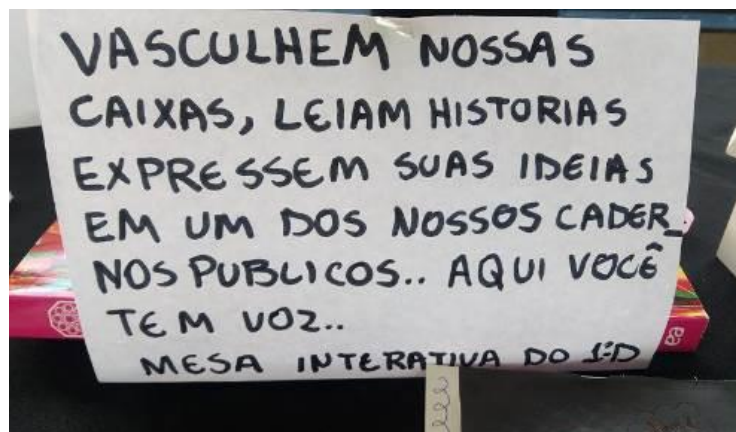 VASCULHEM NOSSAS
CAIXAS, LEIAM HISTORIAS
EXPRESSEM SUAS IDEIAS
EM UM DOS NOSSOS CADER_
NOS PUBLICOS.. AQUI VOCÊ
TEM VOZ..
MESA INTERATIVA DO 1:D
ea